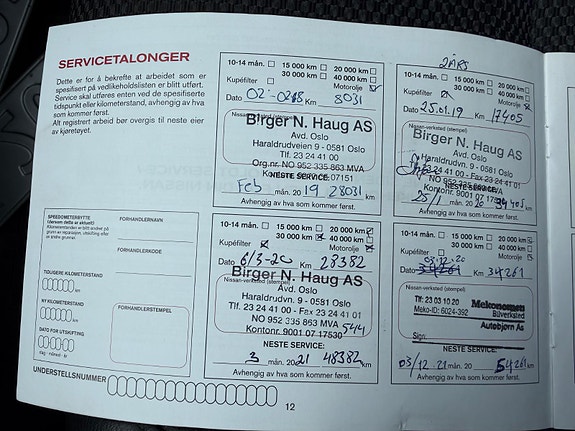 SERVICETALONGER
Dette er for å bekrefte at arbeidet som er
spesifisert på vedlikeholdslisten er blitt utført.
Service skal utføres enten ved de spesifiserte
tidspunkt eller kilometerstand, avhengig av hva
som kommer først.
Alt registrert arbeid bør overgis til neste eier
av kjøretøyet.
10-14 mån. 15 000 km 20 000 km
30 000 km 40 000 km
Kupéfilter Motorolje
Dato 02-0218 Km 8031
Nissan-verksted (stempel)
Birger N. Haug AS
Avd. Oslo
Haraldrudveien 9 - 0581 Oslo
Tlf. 23 24 41 00
Org.nr. NO 952 335 863 MVA
Kontonr. 9001.07.17151
NESTE SERVICE:
Feb mån. 2019 28031 km
Avhengig av hva som kommer først.
2 ÅRS
10-14 mån. 15 000 km 20 000 km
30 000 km 40 000 km
Kupéfilter Motorolje
Dato 25.01.19 Km 17405
Nissan-verksted (stempel)
Birger N. Haug AS
Avd. Oslo
Haraldrudvn. 9 - 0581 Oslo
Tlf. 23 24 41 00 - Fax 23 24 41 01
NO 952 335 863 MVA
Kontonr. 9001 07 17530
NESTE SERVICE:
25/1 mån. 20 km
Avhengig av hva som kommer først.
SPEEDOMETERBYTTE
(dersom dette er aktuelt)
Kilometerstanden er blitt endret på
grunn av reparasjon, utskifting eller
av andre grunner.
TIDLIGERE KILOMETERSTAND
NY KILOMETERSTAND
DATO FOR UTSKIFTING
dag måned år
FORHANDLERNAVN
FORHANDLERKODE
FORHANDLERSTEMPEL
UNDERSTELLSNUMMER
10-14 mån. 15 000 km 20 000 km
30 000 km 40 000 km
Kupéfilter Motorolje
Dato 6/3-20 Km 28382
Nissan-verksted (stempel)
Birger N. Haug AS
Avd. Oslo
Haraldrudvn. 9 - 0581 Oslo
Tlf. 23 24 41 00 - Fax 23 24 41 01
NO 952 335 863 MVA
Kontonr. 9001 07 17530 544
NESTE SERVICE:
3 mån. 2021 48382 km
Avhengig av hva som kommer først.
10-14 mån. 15 000 km 20 000 km
30 000 km 40 000 km
Kupéfilter Motorolje
03.12.20
Dato Km 34261
Nissan-verksted (stempel)
Tlf: 23 03 10 20
Meko-ID: 6024-392
Mekonomen
Bilverksted
Autobjørn As
Sign:
NESTE SERVICE:
03/12 21 mån. 20 54261 km
Avhengig av hva som kommer først.
12